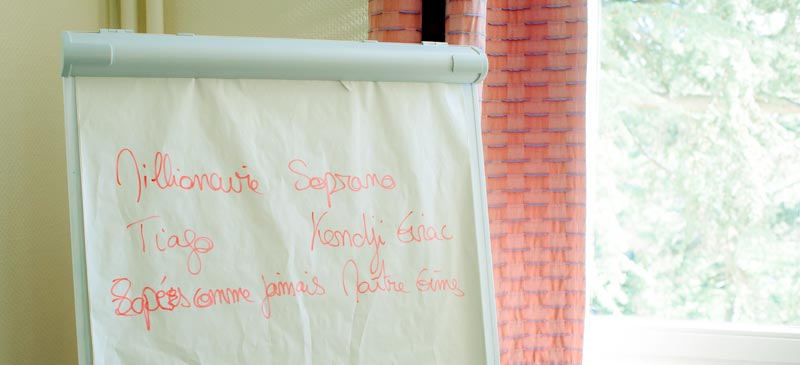 Millionaire Soprano
Tiago Kendji Girac
Sapés comme jamais Maître Gims